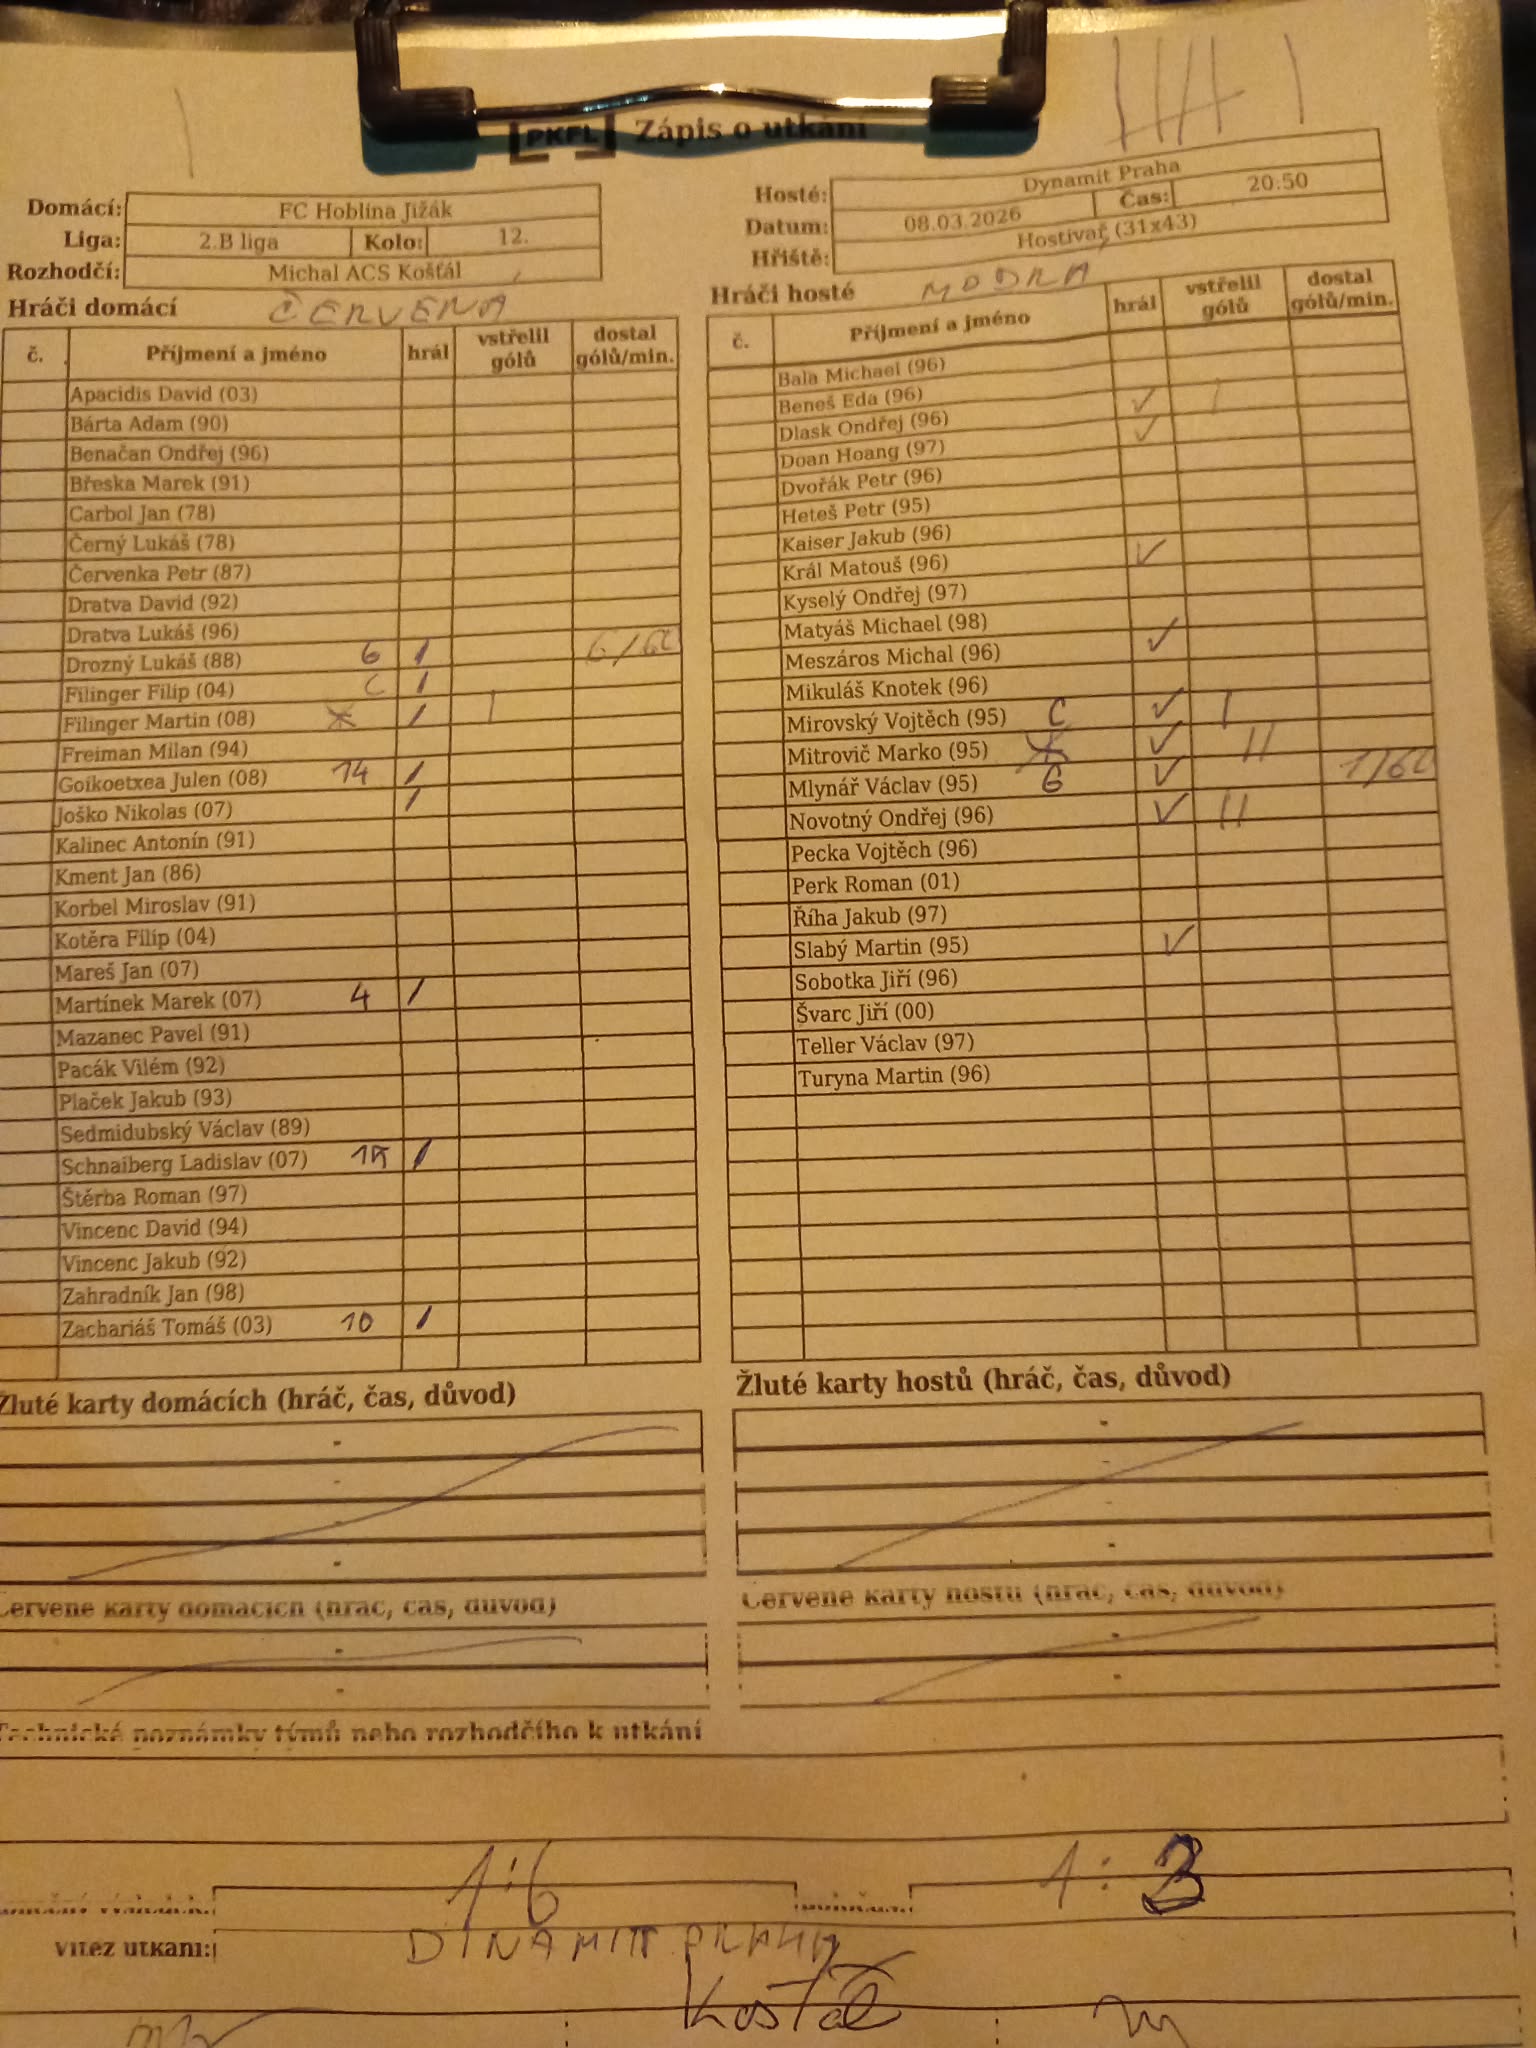 [PKFL] Zápis o utkání
Domácí: FC Hoblina Jižák
Liga: 2.B liga Kolo: 12.
Rozhodčí: Michal ACS Košťál
Hosté: Dynamit Praha
Datum: 08.03.2026 Čas: 20:50
Hřiště: Hostivař (31x43)
Hráči domácí ČERVENÁ
č. Příjmení a jméno hrál vstřelil gólů dostal gólů/min.
Apacidis David (03)
Bárta Adam (90)
Benačan Ondřej (96)
Břeska Marek (91)
Carbol Jan (78)
Černý Lukáš (78)
Červenka Petr (87)
Dratva David (92)
Dratva Lukáš (96)
Drozný Lukáš (88) G / 6/60
Filinger Filip (04) C /
Filinger Martin (08) / |
Freiman Milan (94)
Goikoetxea Julen (08) 14 /
Joško Nikolas (07) /
Kalinec Antonín (91)
Kment Jan (86)
Korbel Miroslav (91)
Kotěra Filip (04)
Mareš Jan (07)
Martínek Marek (07) 4 /
Mazanec Pavel (91)
Pacák Vilém (92)
Plaček Jakub (93)
Sedmidubský Václav (89)
Schnaiberg Ladislav (07) 15 /
Štěrba Roman (97)
Vincenc David (94)
Vincenc Jakub (92)
Zahradník Jan (98)
Zachariáš Tomáš (03) 10 /
Hráči hosté MODRÁ
č. Příjmení a jméno hrál vstřelil gólů dostal gólů/min.
Bala Michael (96)
Beneš Eda (96) ✓ |
Dlask Ondřej (96) ✓
Doan Hoang (97)
Dvořák Petr (96)
Heteš Petr (95)
Kaiser Jakub (96)
Král Matouš (96) ✓
Kyselý Ondřej (97)
Matyáš Michael (98)
Meszáros Michal (96) ✓
Mikuláš Knotek (96)
Mirovský Vojtěch (95) C ✓ |
Mitrovič Marko (95) ✓ ||
Mlynář Václav (95) G ✓ 1/60
Novotný Ondřej (96) ✓ ||
Pecka Vojtěch (96)
Perk Roman (01)
Říha Jakub (97)
Slabý Martin (95) ✓
Sobotka Jiří (96)
Švarc Jiří (00)
Teller Václav (97)
Turyna Martin (96)
Žluté karty domácích (hráč, čas, důvod)
Žluté karty hostů (hráč, čas, důvod)
Červené karty domácích (hráč, čas, důvod)
Červené karty hostů (hráč, čas, důvod)
Technické poznámky týmů nebo rozhodčího k utkání
1:6 1:3
Vítěz utkání: DINAMIT PRAHA
Košťál